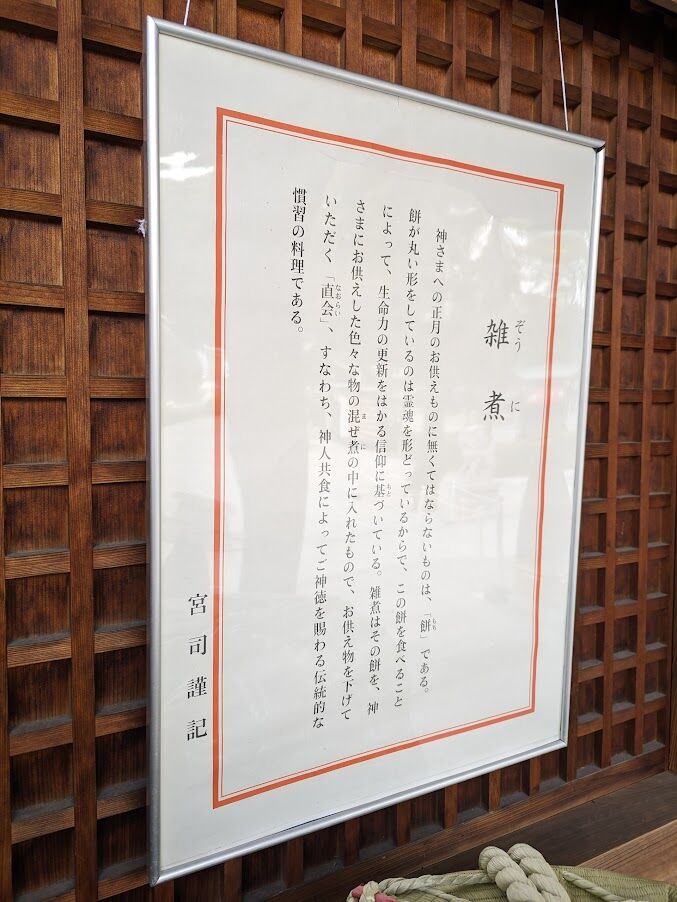 雑煮
ぞうに
神さまへの正月のお供えものに無くてはならないものは、「餅」である。
もち
餅が丸い形をしているのは霊魂を形どっているからで、この餅を食べること
によって、生命力の更新をはかる信仰に基づいている。雑煮はその餅を、神
もと
さまにお供えした色々な物の混ぜ煮の中に入れたもので、お供え物を下げて
ま に
いただく「直会」、すなわち、神人共食によってご神徳を賜わる伝統的な
なおらい
慣習の料理である。
宮司謹記